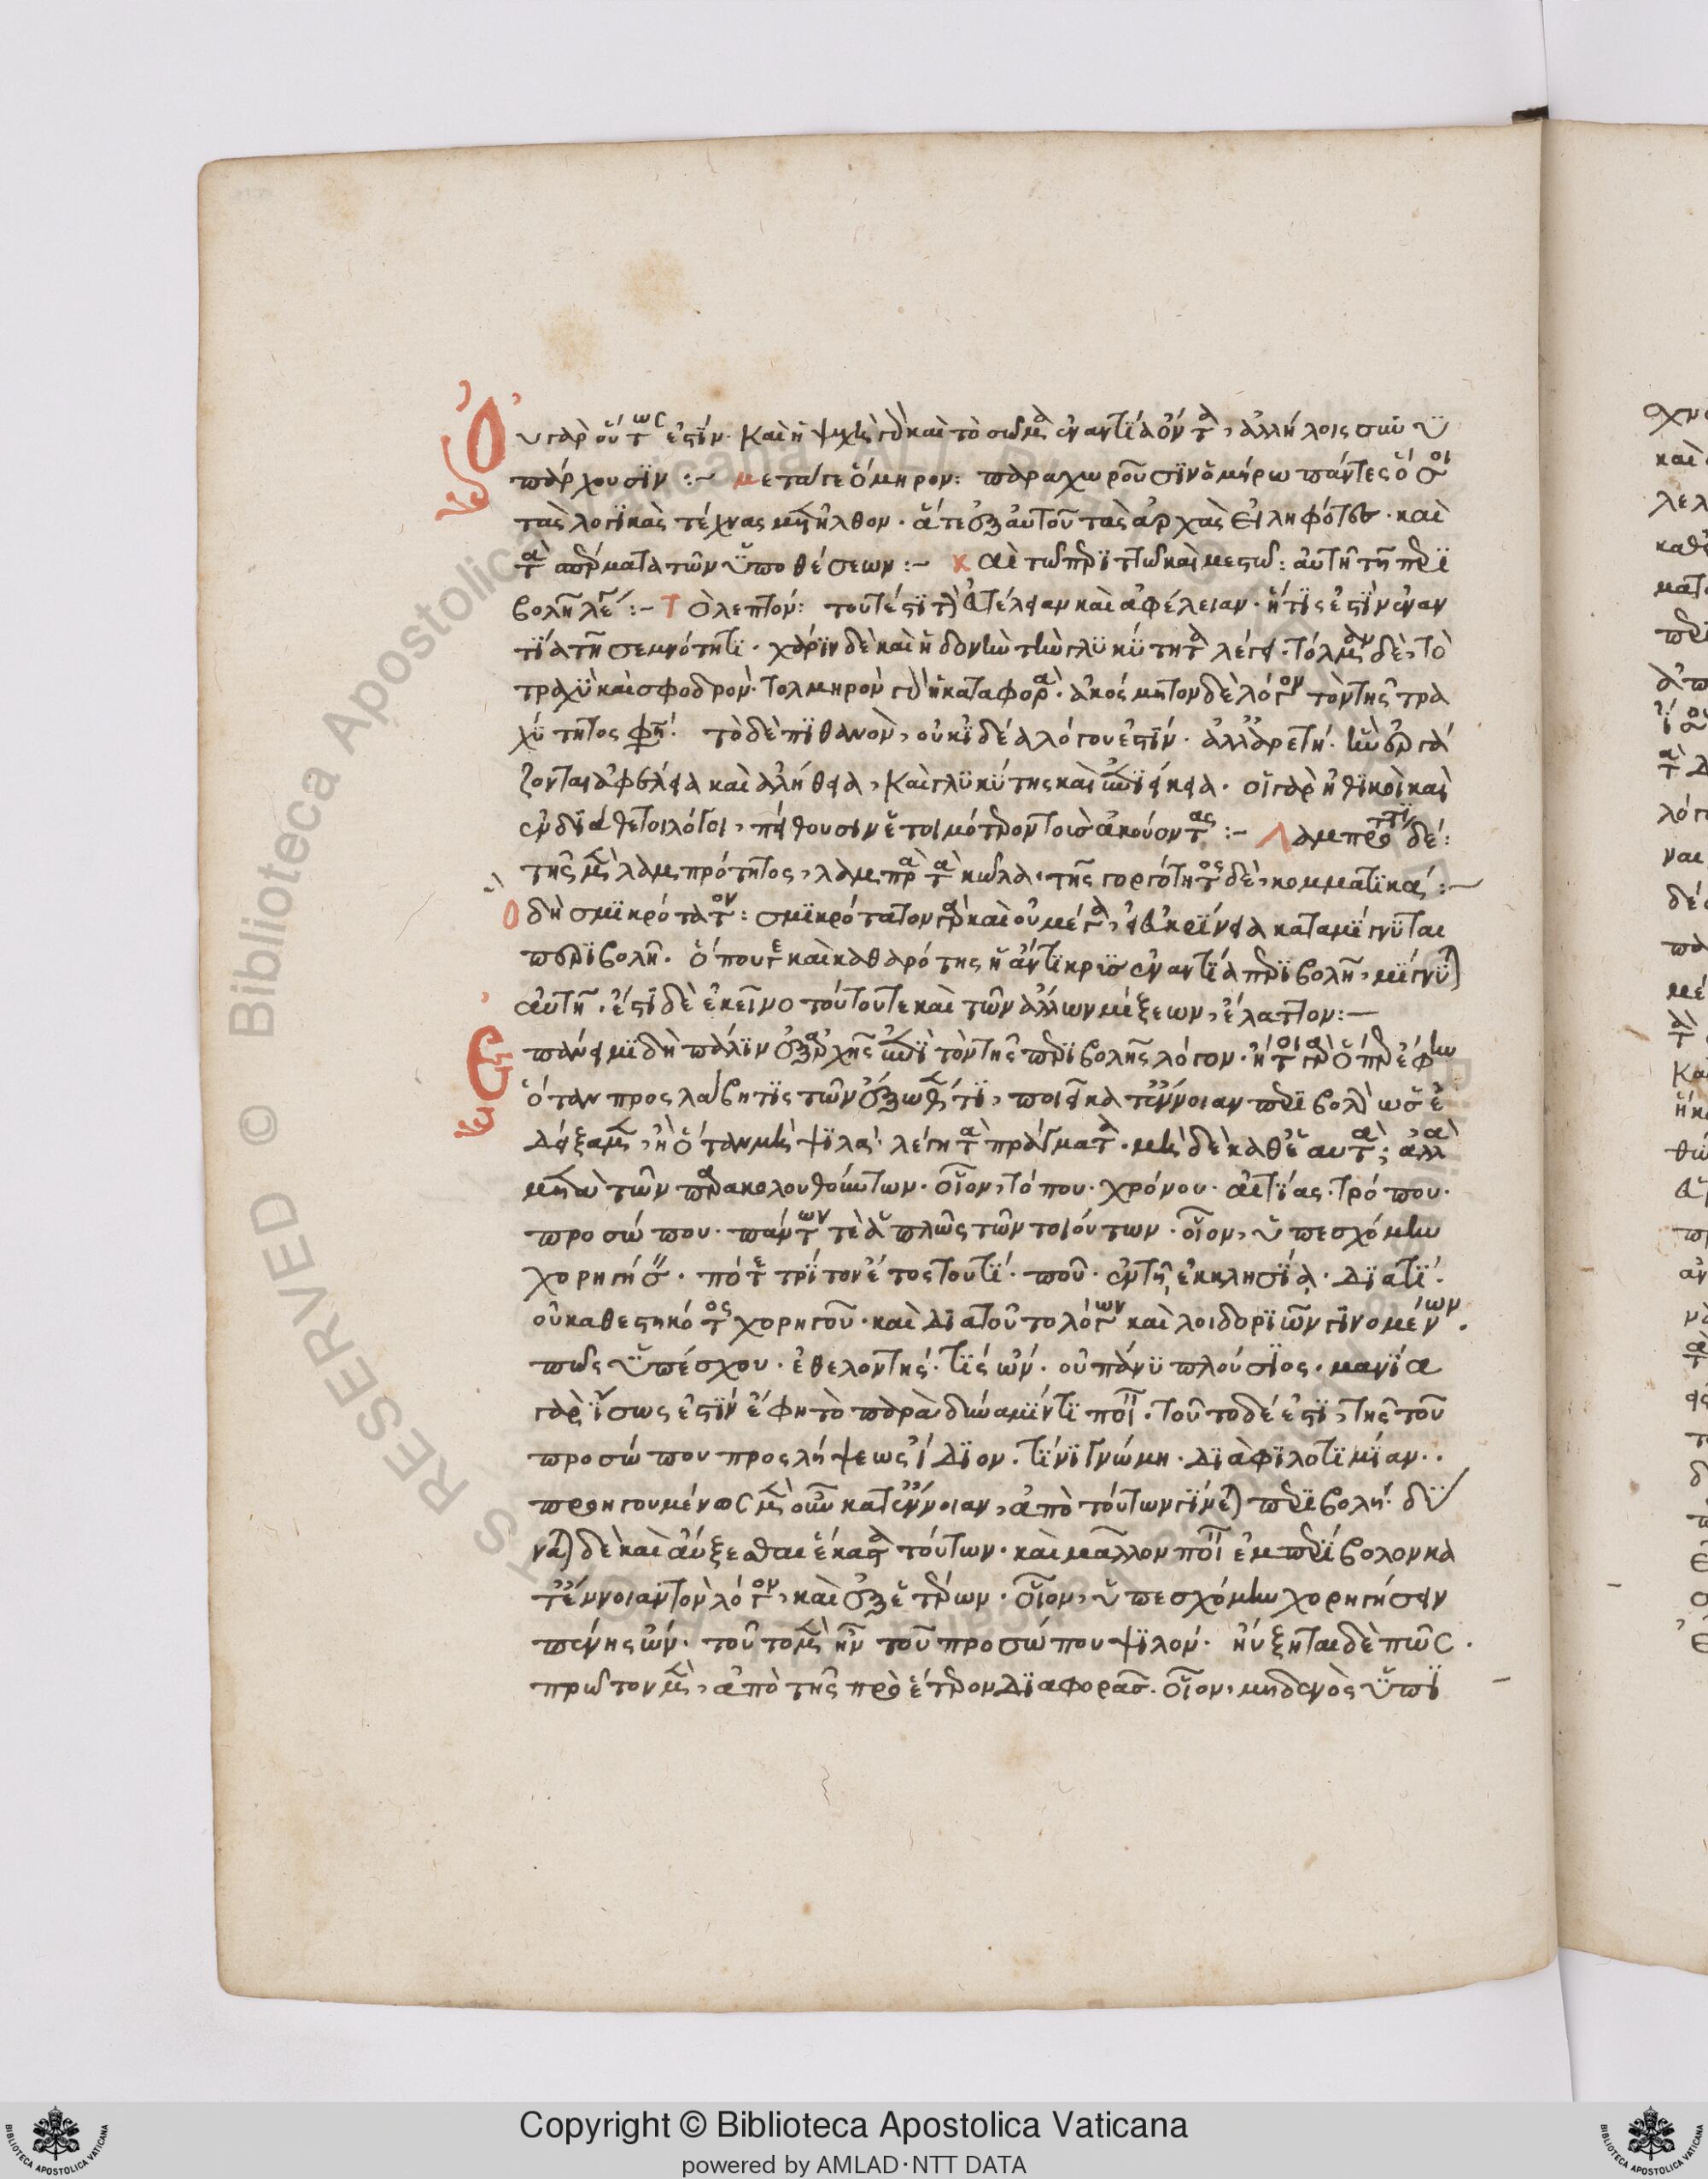 Οὐ γὰρ οὕτως ἐστὶν. καὶ ἡ ψυχὴ γὰρ καὶ τὸ σῶμα ἐναντία ὄντα, ἀλλήλοις συνυ
πάρχουσιν :~ μετά γε ὅμηρον: παραχωροῦσιν ὁμήρω πάντες ὅσοι
τὰς λογικὰς τέχνας μετῆλθον. ἅτε ἐξ αὐτοῦ τὰς ἀρχὰς εἰληφότες. καὶ
τὰ σπέρματα τῶν ὑποθέσεων :~ καὶ τῶ περιττῶ καὶ μεστῶ: αὐτῆ τῆ περι
βολῆ λέγει :~ τὸ λεπτόν: τουτέστι τὴν εὐτέλειαν καὶ ἀφέλειαν. ἥτις ἐστὶν ἐναν
τία τῆ σεμνότητι. χάριν δὲ καὶ ἡδονὴν τὴν γλυκύτητα λέγει. τόλμαν δὲ, τὸ
τραχὺ καὶ σφοδρόν. τολμηρὸν γὰρ ἡ καταφορά. ἀκόσμητον δὲ λόγον τὸν τῆς τρα
χύτητος φησί. τὸ δὲ πιθανὸν, οὐκ ἰδέα λόγου ἐστὶν. ἀλλ' ἀρετή. ἣν ἐργά
ζονται ἀφέλεια καὶ ἀλήθεια, καὶ γλυκύτης καὶ ἐπιείκεια. οἱ γὰρ ἠθικοὶ καὶ
ἐνδιάθετοι λόγοι, πείθουσιν ἑτοιμότερον τοὺς ἀκούοντας :~ Λαμπρότητι δέ:
τῆς μὲν λαμπρότητος, λαμπρὰ τὰ κῶλα. τῆς γοργότητος δὲ, κομματικά :~
ὃ δὴ σμικρότατον: σμικρότατον γὰρ καὶ οὐ μέγα, εἰ εὐκρίνεια καταμίγνυται
περιβολῆ. ὅπου γε καὶ καθαρότης ἡ ἄντικρυς ἐναντία περιβολῆ, μίγνυται
αὐτῆ. ἔστι δὲ ἐκεῖνο τούτου τε καὶ τῶν ἄλλων μίξεων, ἔλαττον :~
Ἐπάνειμι δὴ πάλιν ἐξ ἀρχῆς ἐπὶ τὸν τῆς περιβολῆς λόγον. ἤτοι γὰρ ὅπερ ἔφην
ὅταν προσλάβη τις τῶν ἔξωθέν τι, ποιεῖ κατ' ἔννοιαν περιβολὴν ὡς ἐ
δείξαμεν, ἢ ὅταν μὴ ψιλὰ λέγη τὰ πράγματα. μὴ δὲ καθ' ἑαυτὰ; ἀλλὰ
μετὰ τῶν παρακολουθούντων. οἷον, τόπου. χρόνου. αἰτίας. τρόπου.
προσώπου. πάντων τὲ ἁπλῶς τῶν τοιούτων. οἷον, ὑπεσχόμην
χορηγήσειν. πότε τρίτον ἔτος τουτί. ποῦ. ἐν τῆ ἐκκλησία. διατί.
οὐ καθεστηκότος χορηγοῦ. καὶ διατοῦτο λόγων καὶ λοιδοριῶν γινομένων.
πῶς ὑπέσχου. ἐθελοντής. τίς ὤν. οὐ πάνυ πλούσιος. μανία
γὰρ ἴσως ἐστὶν ἔφη τὸ παρὰ δύναμίν τι ποιεῖν. τοῦτο δέ ἐστι, τῆς τοῦ
προσώπου προσλήψεως ἴδιον. τίνι γνώμη. διὰ φιλοτιμίαν..
προηγουμένως μὲν οὖν κατ' ἔννοιαν, ἀπὸ τούτων γίνεται περιβολή. δύ
ναται δὲ καὶ αὔξεσθαι ἕκαστα τούτων. καὶ μᾶλλον ποιεῖν ἐμπερίβολον κα
τ' ἔννοιαν τὸν λόγον, καὶ ἐξ ἑτέρων. οἷον, ὑπεσχόμην χορηγήσειν
πένης ὤν. τοῦτο μὲν ἦν τοῦ προσώπου ψιλόν. ηὔξηται δὲ πῶς.
πρῶτον μὲν, ἀπὸ τῆς πρὸς ἕτερον διαφορᾶς. οἷον, μηδενὸς ὑπι
Copyright © Biblioteca Apostolica Vaticana
powered by AMLAD·NTT DATA